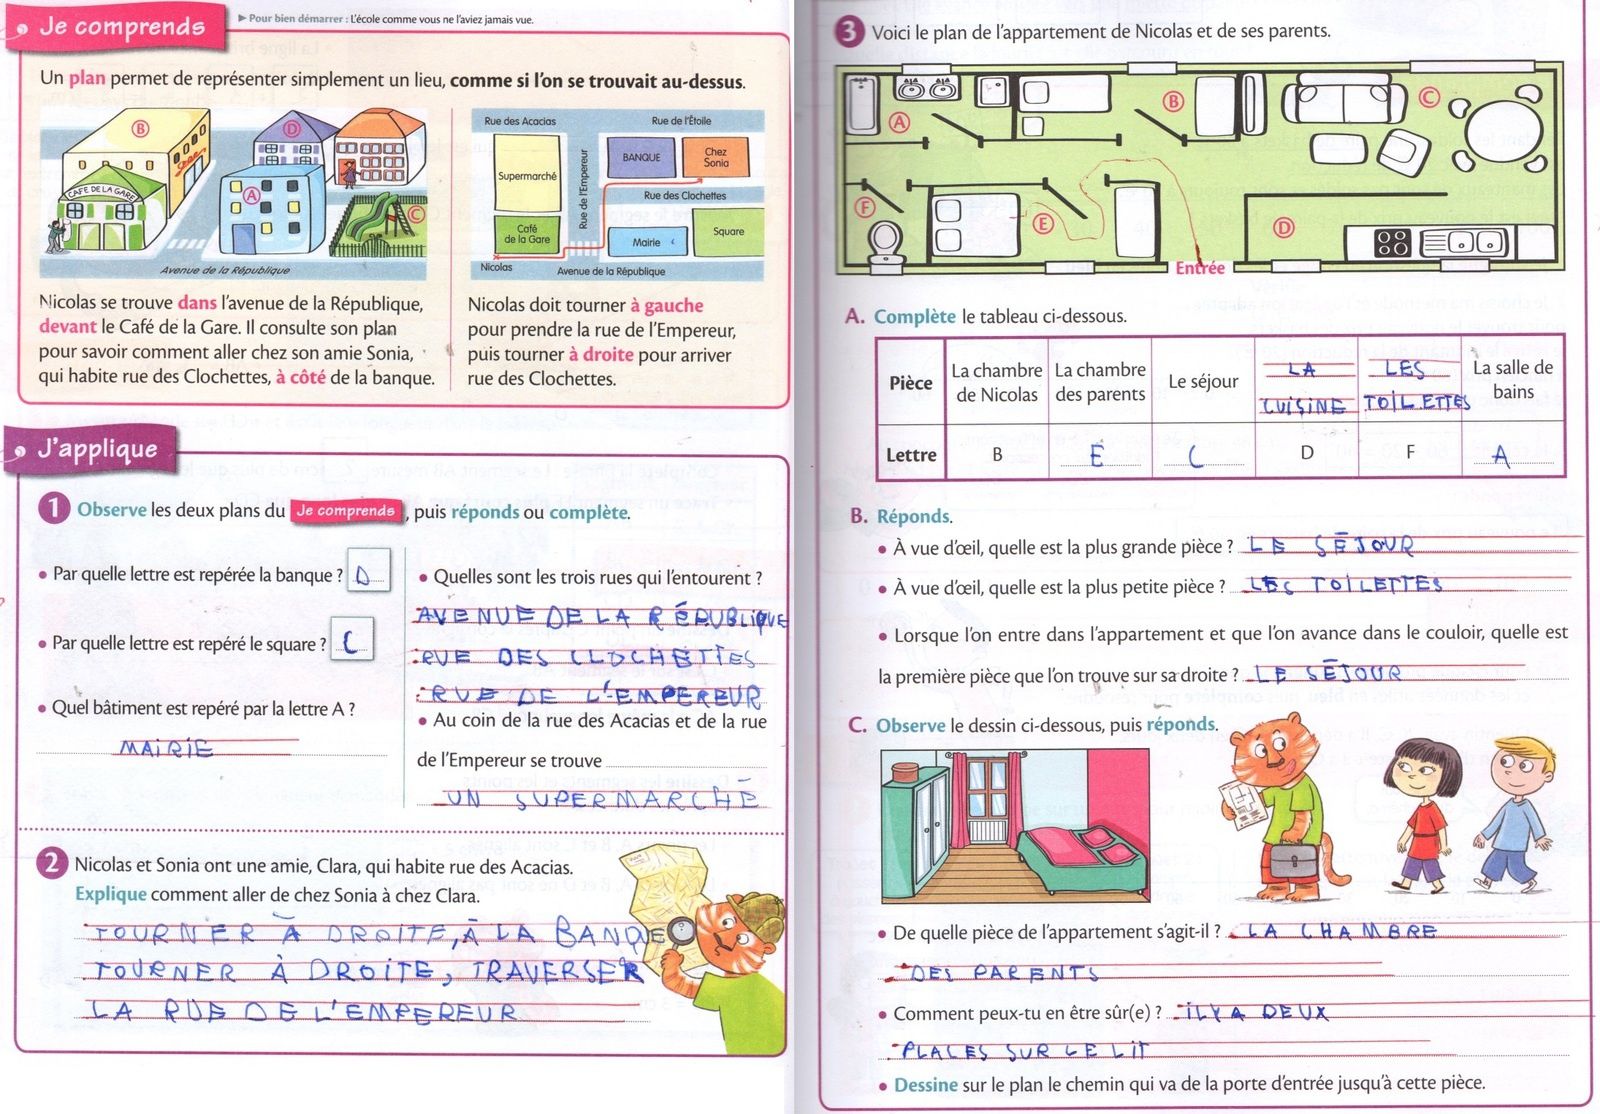 Je comprends
▶ Pour bien démarrer : L'école comme vous ne l'aviez jamais vue.
Un plan permet de représenter simplement un lieu, comme si l'on se trouvait au-dessus.
B
D
CAFE DE LA GARE
A
C
Avenue de la République
Rue des Acacias
Rue de l'Étoile
Supermarché
Rue de l'Empereur
BANQUE
Chez Sonia
Rue des Clochettes
Café de la Gare
Mairie
Square
Nicolas
Avenue de la République
Nicolas se trouve dans l'avenue de la République,
devant le Café de la Gare. Il consulte son plan
pour savoir comment aller chez son amie Sonia,
qui habite rue des Clochettes, à côté de la banque.
Nicolas doit tourner à gauche
pour prendre la rue de l'Empereur,
puis tourner à droite pour arriver
rue des Clochettes.
J'applique
1 Observe les deux plans du Je comprends, puis réponds ou complète.
• Par quelle lettre est repérée la banque ? D
• Par quelle lettre est repéré le square ? C
• Quel bâtiment est repéré par la lettre A ?
MAIRIE
• Quelles sont les trois rues qui l'entourent ?
AVENUE DE LA RÉPUBLIQUE
RUE DES CLOCHETTES
RUE DE L'EMPEREUR
• Au coin de la rue des Acacias et de la rue
de l'Empereur se trouve
UN SUPERMARCHÉ
2 Nicolas et Sonia ont une amie, Clara, qui habite rue des Acacias.
Explique comment aller de chez Sonia à chez Clara.
TOURNER À DROITE, À LA BANQUE
TOURNER À DROITE, TRAVERSER
LA RUE DE L'EMPEREUR
3 Voici le plan de l'appartement de Nicolas et de ses parents.
A
B
C
F
E
D
Entrée
A. Complète le tableau ci-dessous.
Pièce | La chambre de Nicolas | La chambre des parents | Le séjour | LA CUISINE | LES TOILETTES | La salle de bains
Lettre | B | E | C | D | F | A
B. Réponds.
• À vue d'œil, quelle est la plus grande pièce ? LE SÉJOUR
• À vue d'œil, quelle est la plus petite pièce ? LES TOILETTES
• Lorsque l'on entre dans l'appartement et que l'on avance dans le couloir, quelle est
la première pièce que l'on trouve sur sa droite ? LE SÉJOUR
C. Observe le dessin ci-dessous, puis réponds.
• De quelle pièce de l'appartement s'agit-il ? LA CHAMBRE
DES PARENTS
• Comment peux-tu en être sûr(e) ? IL Y A DEUX
PLACES SUR LE LIT
• Dessine sur le plan le chemin qui va de la porte d'entrée jusqu'à cette pièce.